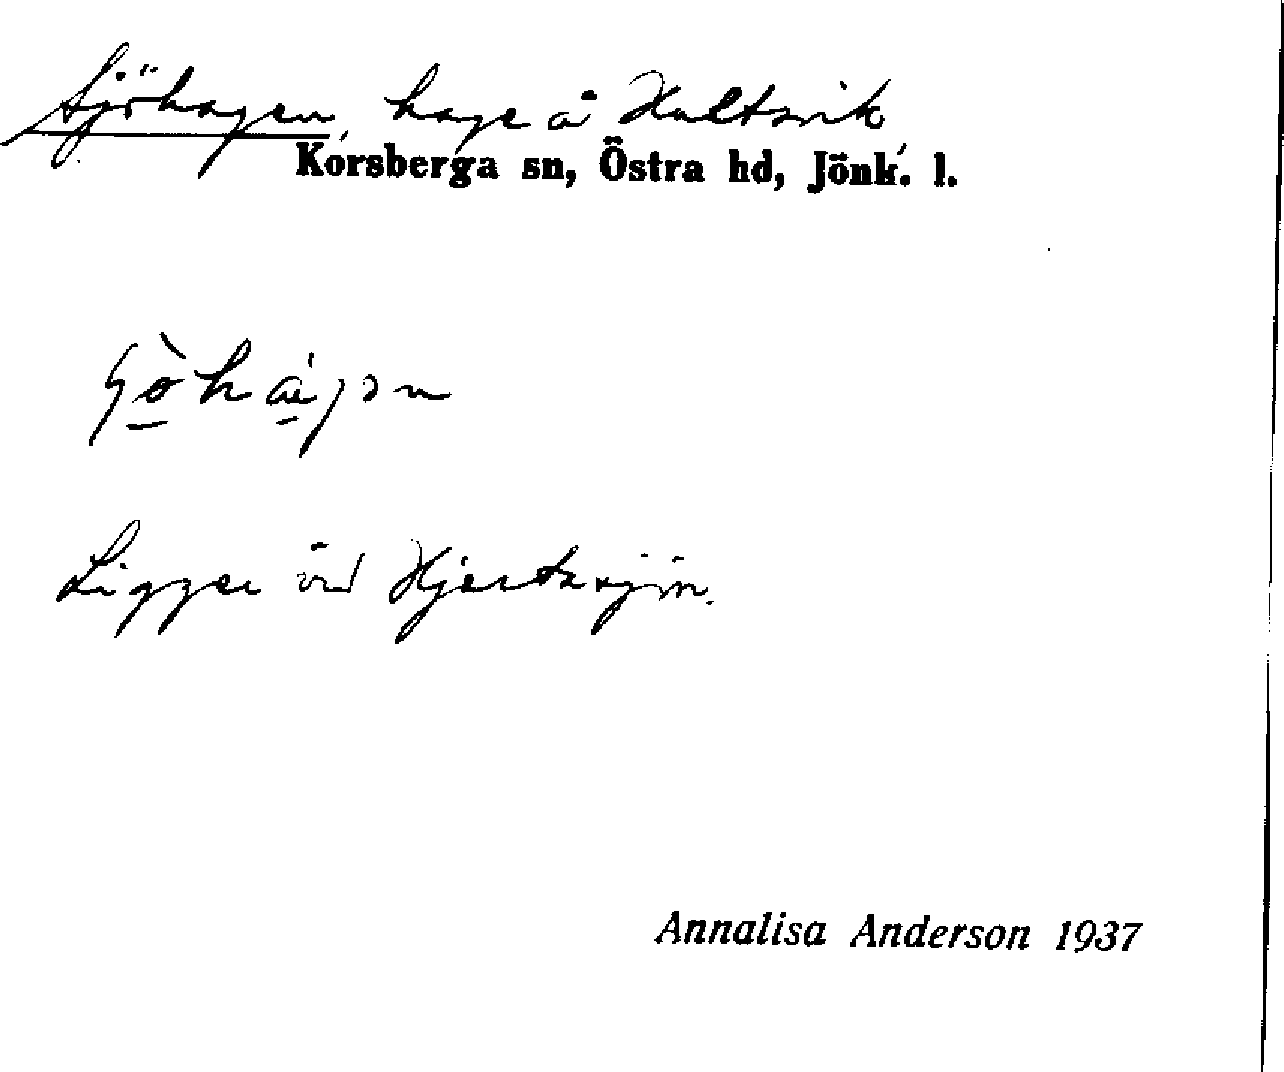 Sjöhagen, hage å Hultsvik,
Korsberga sn, Östra hd, Jönk. l.
Ligger vid Hjertasjön.
Annalisa Anderson 1937